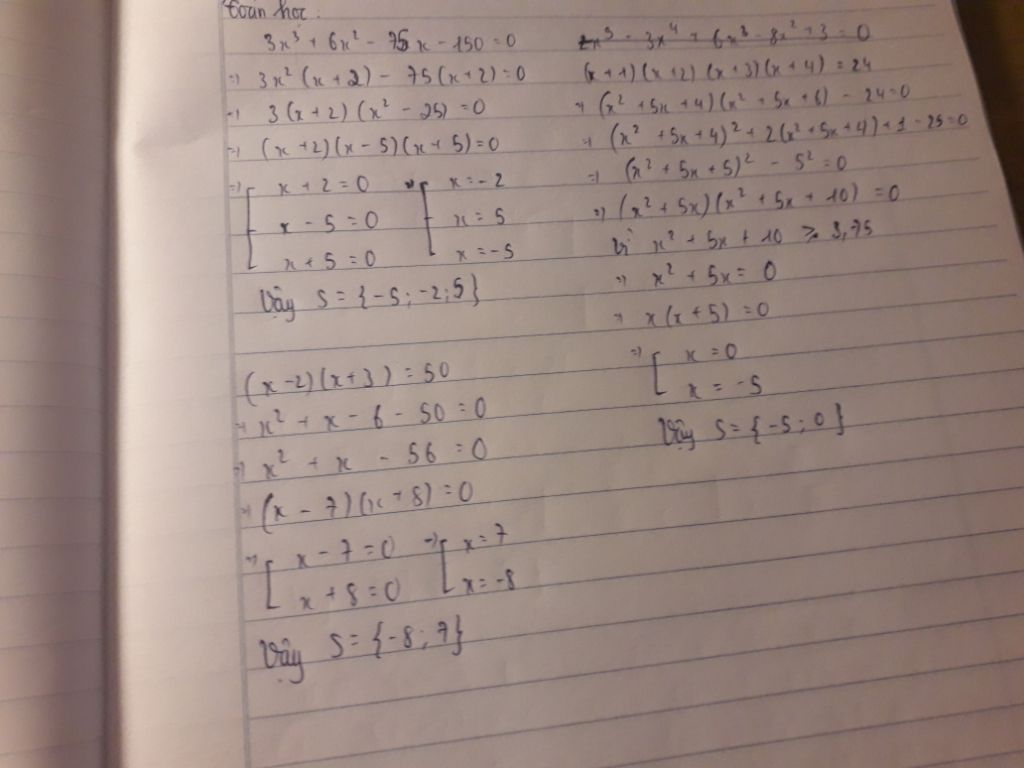 toán học:
3x³ + 6x² - 75x - 150 = 0
=> 3x²(x+2) - 75(x+2) = 0
=> 3(x+2)(x² - 25) = 0
=> (x+2)(x-5)(x+5) = 0
=> [ x + 2 = 0 => [ x = -2
x - 5 = 0 x = 5
x + 5 = 0 x = -5
Vậy S = {-5; -2; 5}
(x-2)(x+3) = 50
=> x² + x - 6 - 50 = 0
=> x² + x - 56 = 0
=> (x - 7)(x + 8) = 0
=> [ x - 7 = 0 => [ x = 7
x + 8 = 0 x = -8
Vậy S = {-8; 7}
x⁵ - 3x⁴ + 6x³ - 8x² + 3 = 0
(x+1)(x+2)(x+3)(x+4) = 24
=> (x² + 5x + 4)(x² + 5x + 6) - 24 = 0
=> (x² + 5x + 4)² + 2(x² + 5x + 4) + 1 - 25 = 0
=> (x² + 5x + 5)² - 5² = 0
=> (x² + 5x)(x² + 5x + 10) = 0
Vì x² + 5x + 10 ≥ 3,75
=> x² + 5x = 0
=> x(x+5) = 0
=> [ x = 0
x = -5
Vậy S = {-5; 0}